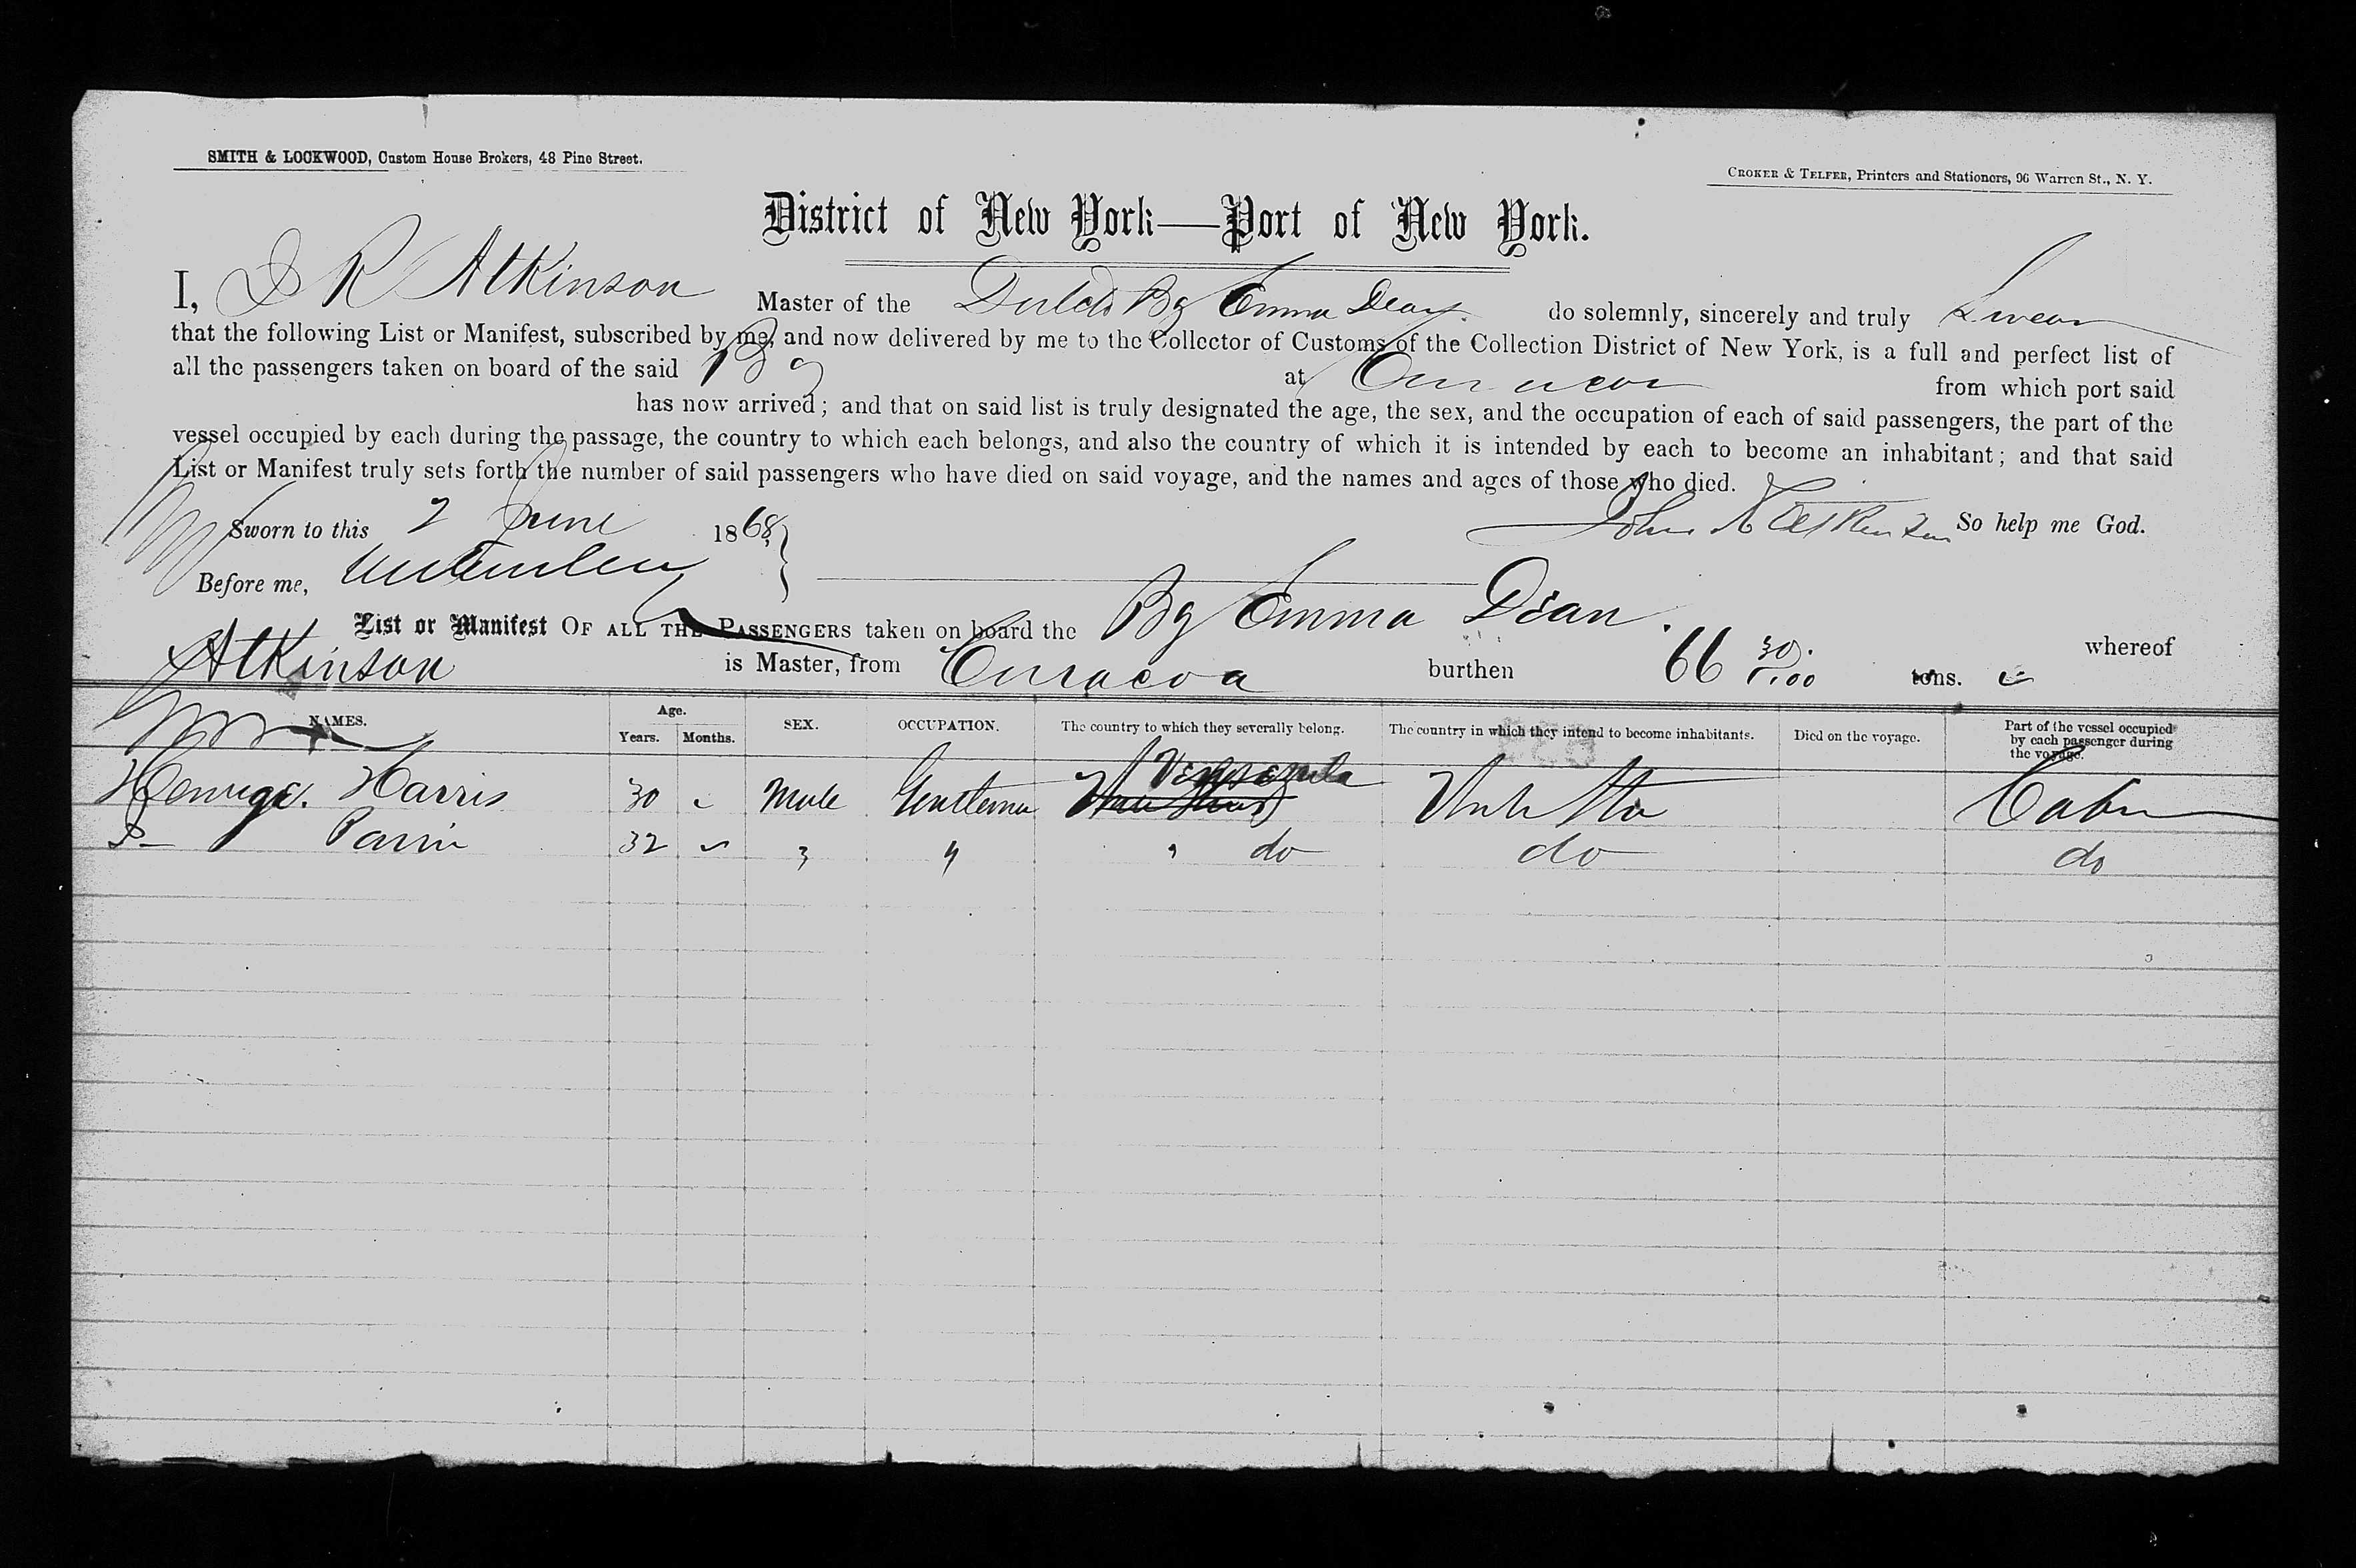 SMITH & LOCKWOOD, Custom House Brokers, 48 Pine Street.
CROKER & TELFER, Printers and Stationers, 96 Warren St., N. Y.
District of New York—Port of New York.
I, J R Atkinson Master of the Dutch Bg Emma Dean do solemnly, sincerely and truly Swear
that the following List or Manifest, subscribed by me, and now delivered by me to the Collector of Customs of the Collection District of New York, is a full and perfect list of
all the passengers taken on board of the said Bg at Curacoa from which port said
has now arrived; and that on said list is truly designated the age, the sex, and the occupation of each of said passengers, the part of the
vessel occupied by each during the passage, the country to which each belongs, and also the country of which it is intended by each to become an inhabitant; and that said
List or Manifest truly sets forth the number of said passengers who have died on said voyage, and the names and ages of those who died.
Sworn to this 2 June 1868 John R Atkinson So help me God.
Before me,
List or Manifest OF ALL THE PASSENGERS taken on board the Bg Emma Dean. whereof
Atkinson is Master, from Curacoa burthen 66 30/100 tons.
NAMES. Age. Years. Months. SEX. OCCUPATION. The country to which they severally belong. The country in which they intend to become inhabitants. Died on the voyage. Part of the vessel occupied by each passenger during the voyage.
Harris 30 Male Gentleman Venezuela Cabin
32 " " " do do do